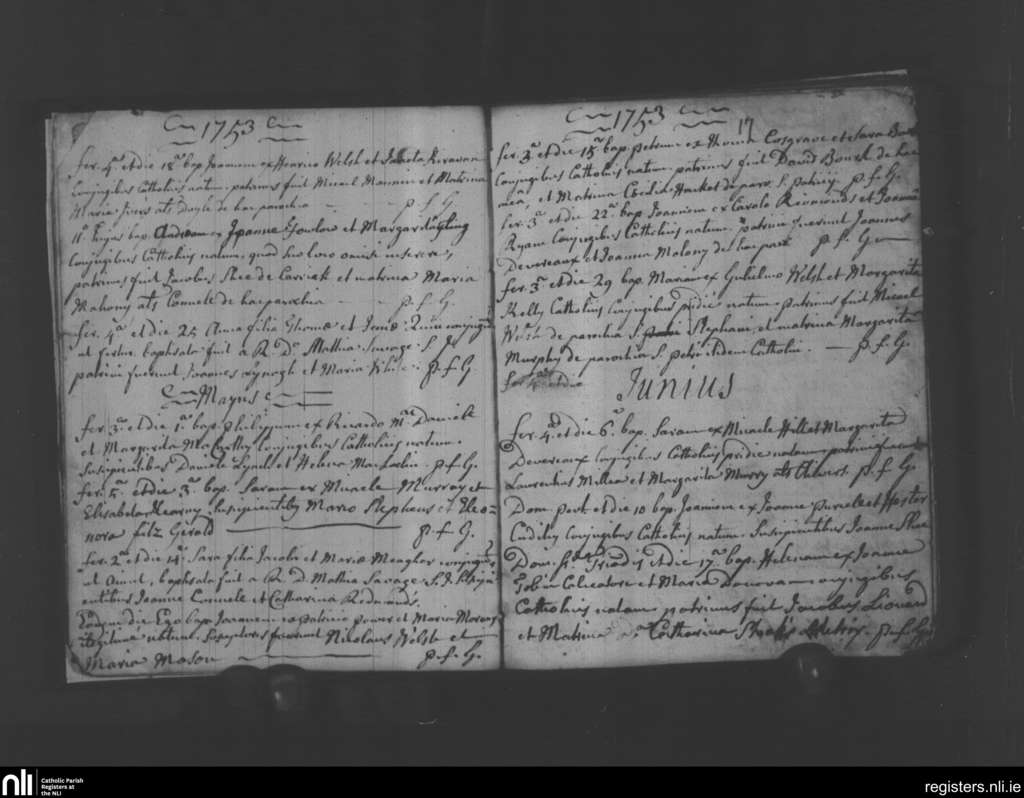 1753
fer. 4ª et die 18ª bap Joannem ex Henrico Welsh et Kirwan
Conjugibus Catholicis natum, patrinus fuit Micael et Matrina
Maria alts Doyle de hac parochia p. f. G.
11º hujus bap. Andream ex Joanne et Margarita
Conjugibus Catholicis natum, quod suo loco omisi inserere,
patrinus fuit Jacobus Shee de Carrick et matrina Maria
Mahony alts Connell de hac parochia p. f. G.
fer. 4ª et die 25 Anna filia Thomæ et Quin conjugum
ut fertur, baptisata fuit a R. D. Matthia Savage S. J.
patrini fuerunt Joannes et Maria White. p. f. G.
Mayus
fer. 3ª et die 1ª bap. Philippum ex Ricardo Mc Daniell
et Margarita McCarthy Conjugibus Catholicis natum.
Suscipientibus Daniele Lyach et Helena MacLoclin. p. f. G.
fer. 5ª et die 3ª bap. Saram ex Micaele Murray et
Elisabeta Kearny, Suscipientibus Mario Stephens et Eleo=
nora fitz Gerald p. f. G.
fer. 2ª et die 14ª Sara filia Jacobi et Mariæ Meagher conjugum,
ut aiunt, baptisata fuit a R. D. Mathia Savage S. J. suscipi-
entibus Joanne Connell et Catharina Redmonds.
Eodem die Ego bap. Joannem ex Patricio Power et Maria
legitime natum. Susceptores fuerunt Nicolaus Welsh et
Maria Mason p. f. G.
1753
17
fer. 3ª et die 15ª bap. Petrum ex Cosgrave et Sara
Conjugibus Catholicis natum patrinus fuit David Bourk de hac
mea, et Matrina Cecilia Hacket de paro. S. Patricij p. f. G.
fer. 3ª et die 22ª bap. Joannem ex Carolo Redmonds et Joanna
Ryan Conjugibus Catholicis natum, patrini fuerunt Joannes
Devereaux et Joanna Malony de hac par. p. f. G
fer. 3ª et die 29 bap. Mariam ex Gulielmo Welsh et Margarita
Kelly Catholicis Conjugibus pridie natam patrinus fuit Micael
de parochia S. Stephani, et matrina Margarita
Murphy de parochia S. Petri itidem Catholici. p. f. G.
fer. 4ª et die
Junius
fer. 4ª et die 6ª bap. Saram ex Micaele Hill et Margarita
Devereaux Conjugibus Catholicis pridie natam patrini fuerunt
Laurentius Millea et Margarita Murry alts p. f. G.
Dom. Pent. et die 10 bap. Joannem ex Joanne Purcell et Hester
Cudihy Conjugibus Catholicis natum. Suscipientibus Joanne Shee
Dom. et die 17ª bap. Helenam ex Joanne
Tobin et Maria Donovan conjugibus
Catholicis natam patrinus fuit Jacobus
et Matrina Catharina p. f. G
nli
Catholic Parish
Registers at
the NLI
registers.nli.ie